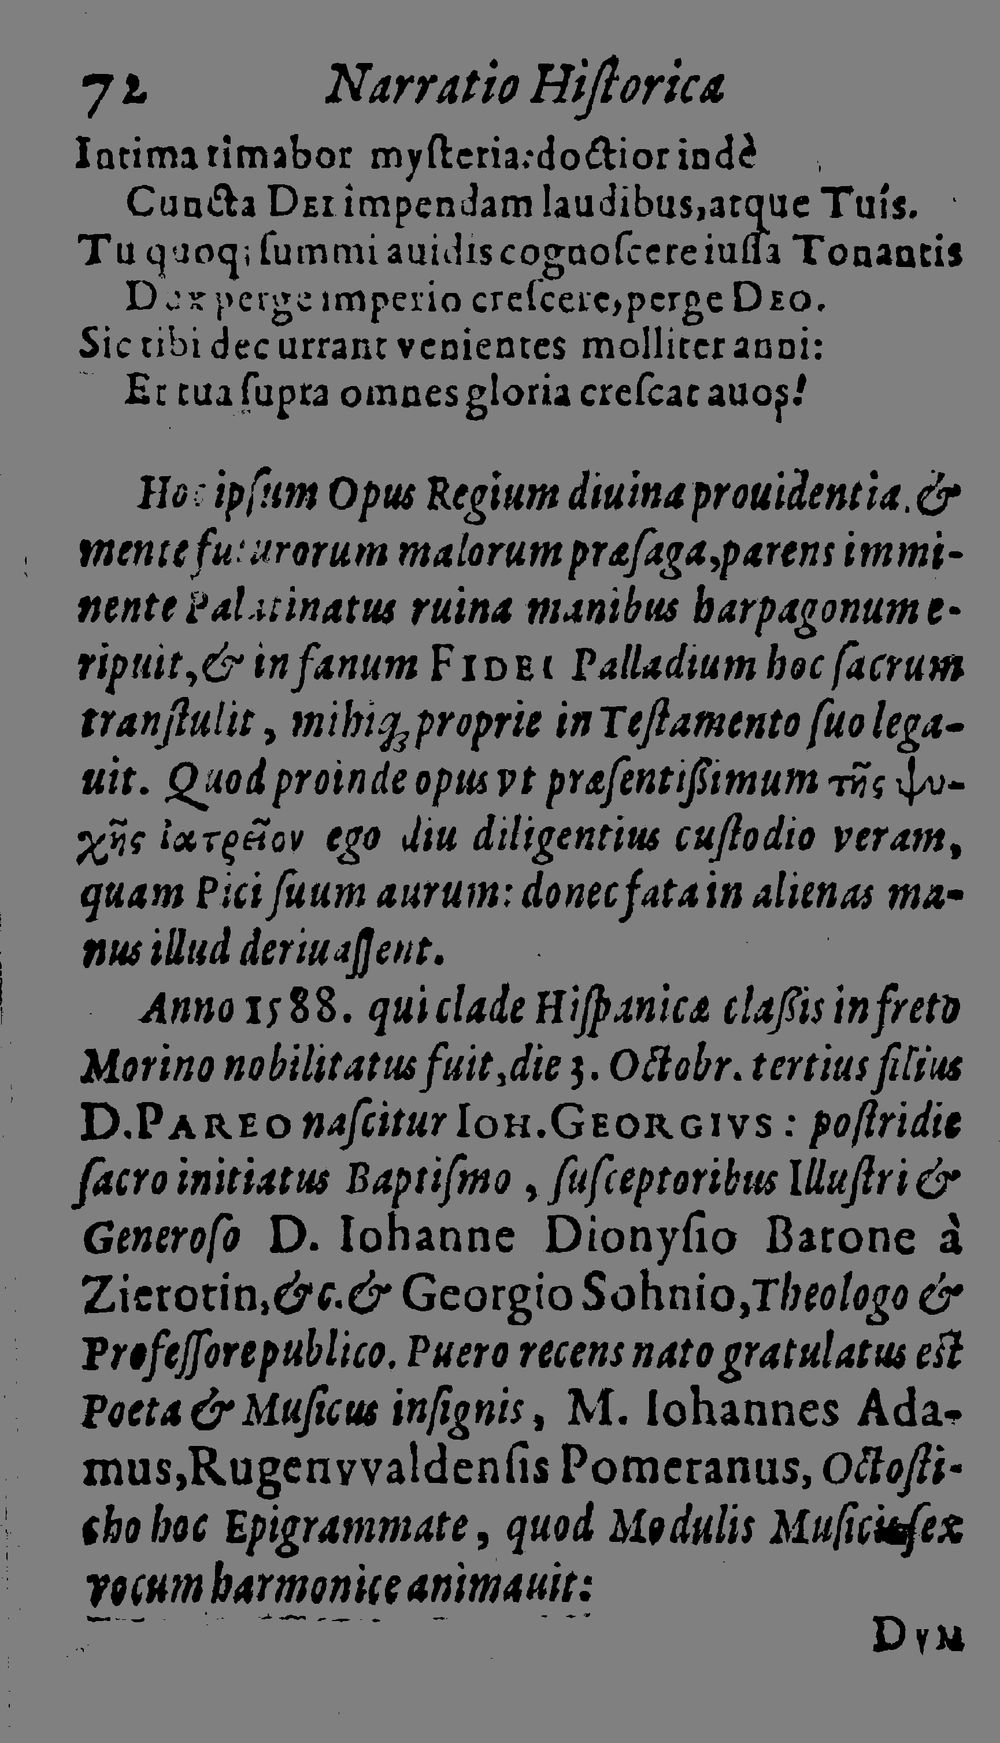 72 Narratio Hiſtorica
Intima rimabor myſteria: doctior indè
Cuncta DEI impendam laudibus, atque Tuis.
Tu quoq; ſummi auidis cognoſcere iuſſa Tonantis
Dux perge imperio creſcere, perge DEO.
Sic tibi decurrant venientes molliter anni:
Et tua ſupra omnes gloria creſcat auos!
Hoc ipſum Opus Regium diuina prouidentia, &
mente futurorum malorum præſaga, parens immi-
nente Palatinatus ruina manibus harpagonum e-
ripuit, & in fanum FIDEI Palladium hoc ſacrum
tranſtulit, mihiq; proprie in Teſtamento ſuo lega-
uit. Quod proinde opus vt præſentiſſimum τῆς ψυ-
χῆς ἰατρεῖον ego diu diligentius cuſtodio veram,
quam Pici ſuum aurum: donec fata in alienas ma-
nus illud deriuaſſent.
Anno 1588. qui clade Hiſpanicæ claſſis in freto
Morino nobilitatus fuit, die 3. Octobr. tertius filius
D. PAREO naſcitur IOH. GEORGIVS: poſtridie
ſacro initiatus Baptiſmo, ſuſceptoribus Illuſtri &
Generoſo D. Iohanne Dionyſio Barone à
Zierotin, &c. & Georgio Sohnio, Theologo &
Profeſſore publico. Puero recens nato gratulatus eſt
Poeta & Muſicus inſignis, M. Iohannes Ada-
mus, Rugenvvaldenſis Pomeranus, Octoſti-
cho hoc Epigrammate, quod Modulis Muſicis ſex
vocum harmonice animauit:
DVM